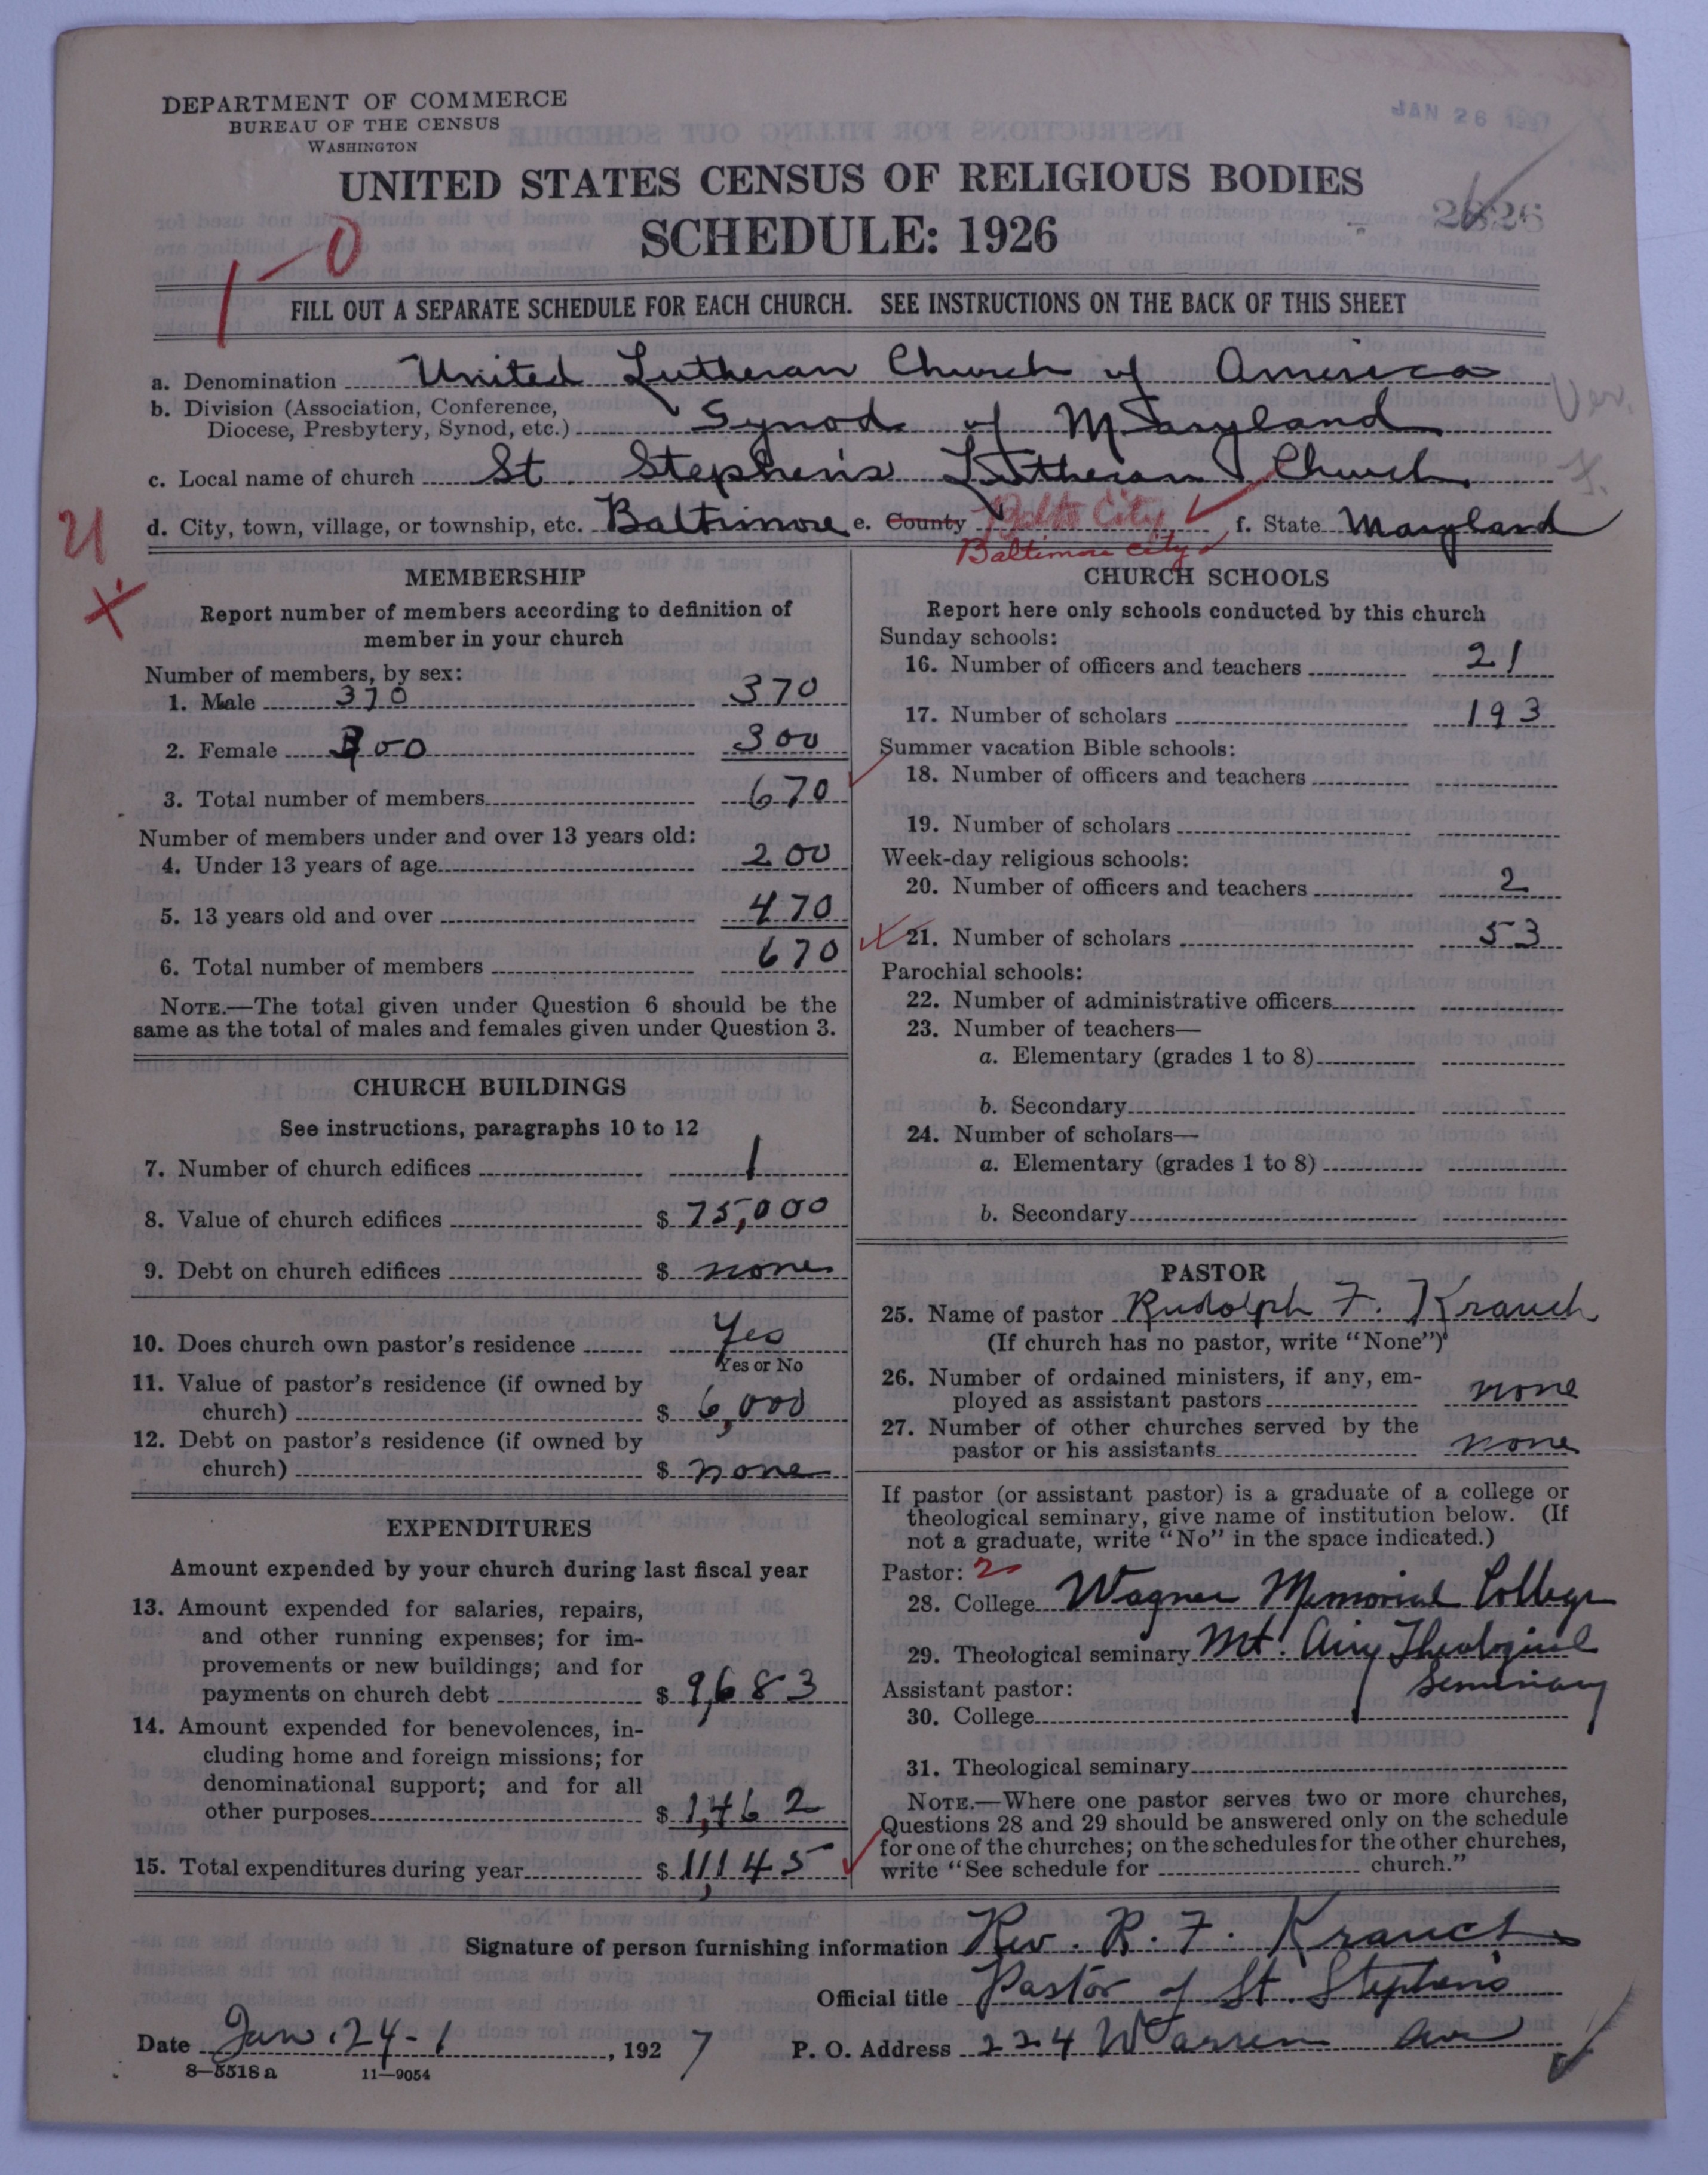 JAN 26 1927
DEPARTMENT OF COMMERCE
BUREAU OF THE CENSUS
WASHINGTON
UNITED STATES CENSUS OF RELIGIOUS BODIES
SCHEDULE: 1926
1-0
FILL OUT A SEPARATE SCHEDULE FOR EACH CHURCH. SEE INSTRUCTIONS ON THE BACK OF THIS SHEET
a. Denomination United Lutheran Church of America
b. Division (Association, Conference,
Diocese, Presbytery, Synod, etc.) Synod of Maryland
Ver.
c. Local name of church St. Stephen's Lutheran Church
d. City, town, village, or township, etc. Baltimore e. County Balto City f. State Maryland
Baltimore City
MEMBERSHIP
Report number of members according to definition of
member in your church
Number of members, by sex:
1. Male 370 370
2. Female 300 300
3. Total number of members 670
Number of members under and over 13 years old:
4. Under 13 years of age 200
5. 13 years old and over 470
6. Total number of members 670
NOTE.—The total given under Question 6 should be the
same as the total of males and females given under Question 3.
CHURCH BUILDINGS
See instructions, paragraphs 10 to 12
7. Number of church edifices 1
8. Value of church edifices $ 75,000
9. Debt on church edifices $ none
10. Does church own pastor's residence Yes
Yes or No
11. Value of pastor's residence (if owned by
church) $ 6,000
12. Debt on pastor's residence (if owned by
church) $ none
EXPENDITURES
Amount expended by your church during last fiscal year
13. Amount expended for salaries, repairs,
and other running expenses; for im-
provements or new buildings; and for
payments on church debt $ 9,683
14. Amount expended for benevolences, in-
cluding home and foreign missions; for
denominational support; and for all
other purposes $ 1,462
15. Total expenditures during year $ 11,145
CHURCH SCHOOLS
Report here only schools conducted by this church
Sunday schools:
16. Number of officers and teachers 21
17. Number of scholars 193
Summer vacation Bible schools:
18. Number of officers and teachers
19. Number of scholars
Week-day religious schools:
20. Number of officers and teachers 2
21. Number of scholars 53
Parochial schools:
22. Number of administrative officers
23. Number of teachers—
a. Elementary (grades 1 to 8)
b. Secondary
24. Number of scholars—
a. Elementary (grades 1 to 8)
b. Secondary
PASTOR
25. Name of pastor Rudolph F. Krauch
(If church has no pastor, write "None")
26. Number of ordained ministers, if any, em-
ployed as assistant pastors none
27. Number of other churches served by the
pastor or his assistants none
If pastor (or assistant pastor) is a graduate of a college or
theological seminary, give name of institution below. (If
not a graduate, write "No" in the space indicated.)
Pastor: 2
28. College Wagner Memorial College
29. Theological seminary Mt. Airy Theological
Seminary
Assistant pastor:
30. College
31. Theological seminary
NOTE.—Where one pastor serves two or more churches,
Questions 28 and 29 should be answered only on the schedule
for one of the churches; on the schedules for the other churches,
write "See schedule for church."
Signature of person furnishing information Rev. R. F. Krauch
Official title Pastor of St. Stephen's
Date Jan. 24-1, 1927 P. O. Address 224 Warren Ave
8—5518 a 11—9054